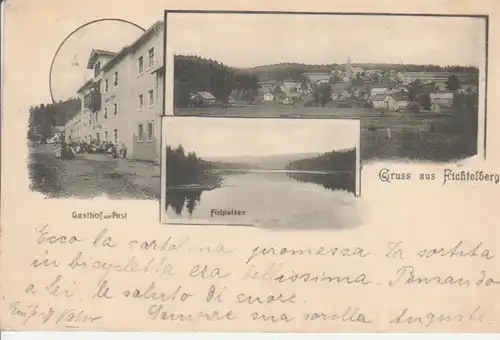 Gruss aus Fichtelberg
Gasthof zur Post
Fichtelsee
Ecco la cartolina promessa. La sortita
in bicycletta era bellissima. Pensando
a Lei, le saluto di cuore.
Sempre sua sorella Auguste.